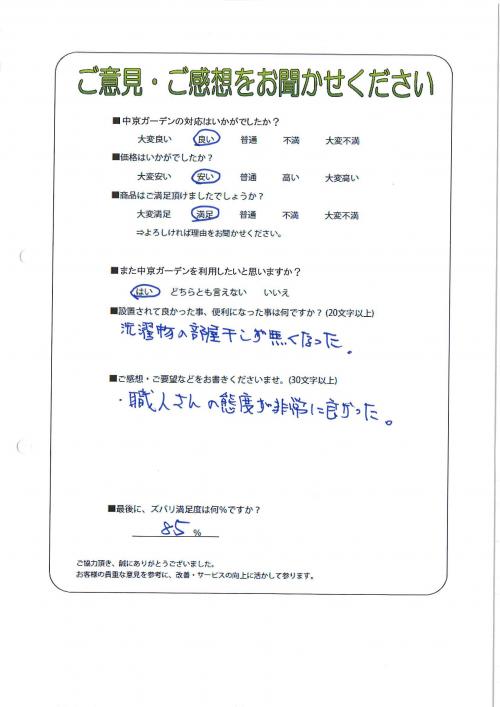 ご意見・ご感想をお聞かせください
■中京ガーデンの対応はいかがでしたか？
大変良い 良い 普通 不満 大変不満
■価格はいかがでしたか？
大変安い 安い 普通 高い 大変高い
■商品はご満足頂けましたでしょうか？
大変満足 満足 普通 不満 大変不満
⇒よろしければ理由をお聞かせください。
■また中京ガーデンを利用したいと思いますか？
はい どちらとも言えない いいえ
■設置されて良かった事、便利になった事は何ですか？(20文字以上)
洗濯物の部屋干しが無くなった。
■ご感想・ご要望などをお書きくださいませ。(30文字以上)
・職人さんの態度が非常に良かった。
■最後に、ズバリ満足度は何%ですか？
85 %
ご協力頂き、誠にありがとうございました。
お客様の貴重な意見を参考に、改善・サービスの向上に活かして参ります。